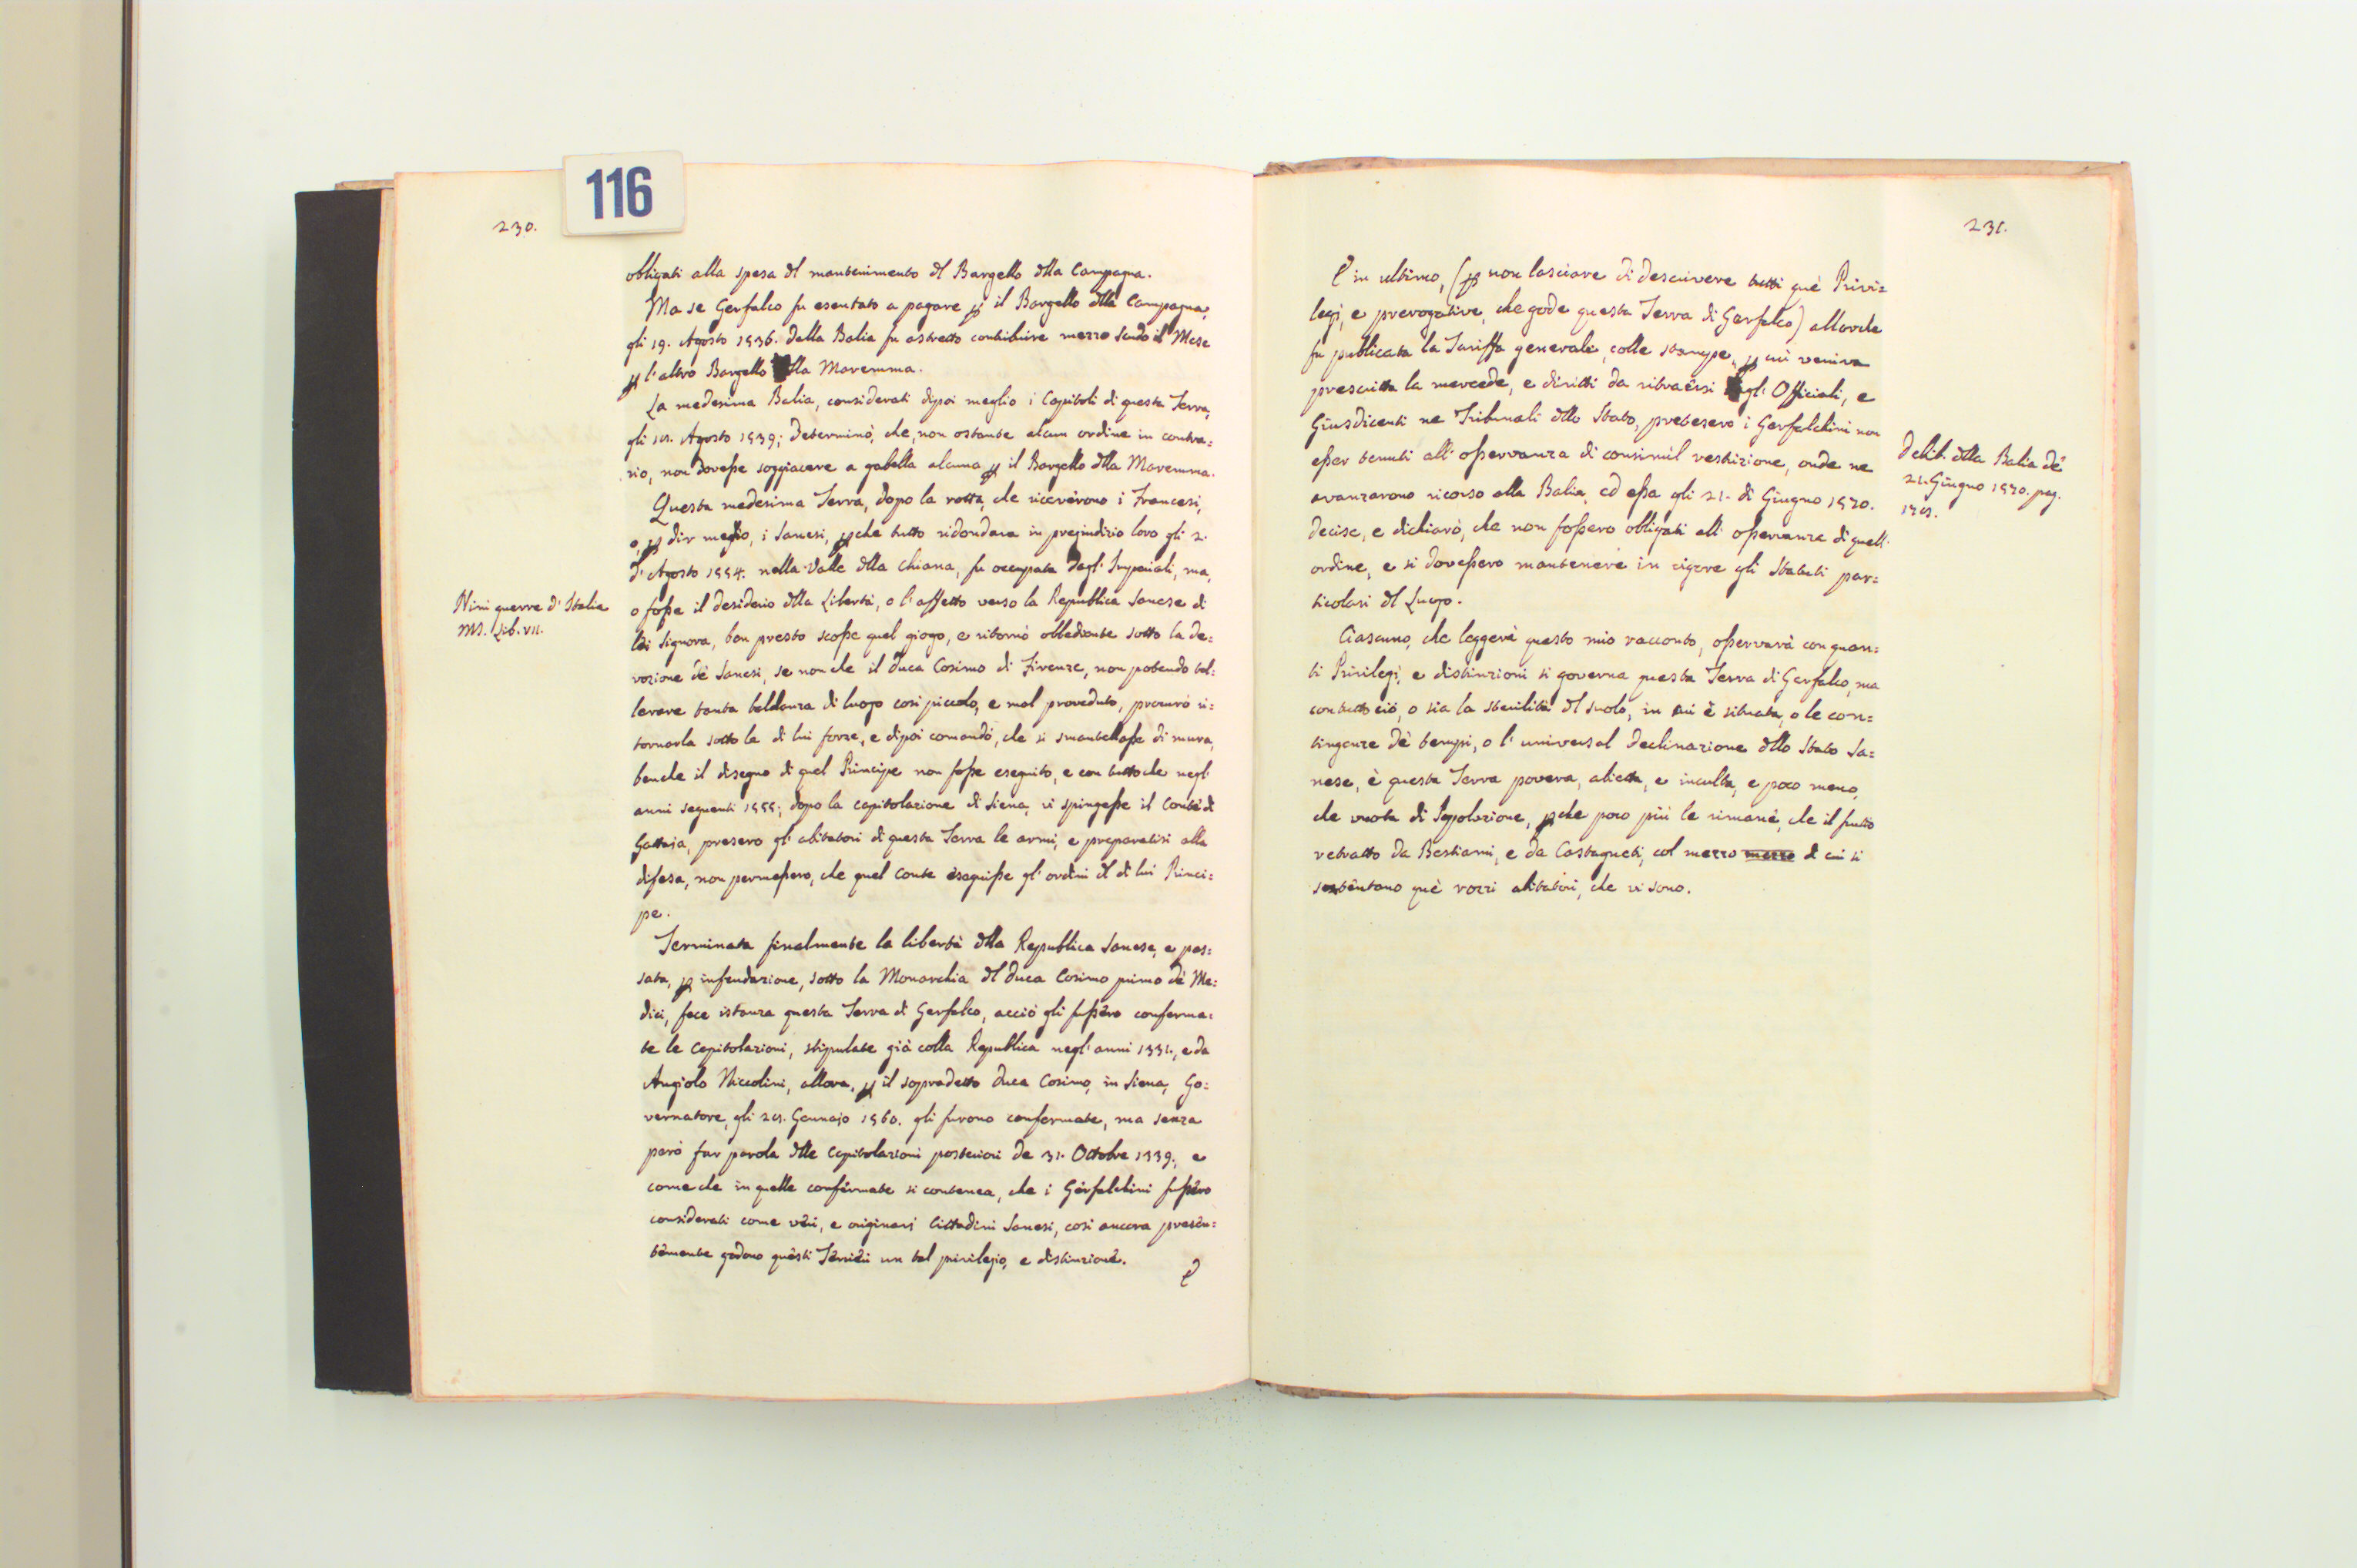 116
230.
obligati alla spesa dl mantenimento dl Bargello dlla Campagna.
Ma se Gerfalco fu esentato a pagare p il Bargello dlla Campagna,
gli 19. Agosto 1536. dalla Balia fu astretto contribuire mezzo scudo il Mese
p l'altro Bargello dlla Maremma.
La medesima Balia, considerati dipoi meglio i Capitoli di questa Terra,
gli Agosto 1539; determinò, che, non ostante alcun ordine in contra=
rio, non dovesse soggiacere a gabella alcuna p il Bargello dlla Maremma.
Questa medesima Terra, dopo la rotta, che riceverono i Francesi,
o, p dir meglio, i Sanesi, pche tutto ridondava in pregiudizio loro gli 2.
d'Agosto 1554. nella Valle dlla Chiana, fu occupata dagl'Imperiali, ma,
o fosse il desiderio dlla Libertà, o l'affetto verso la Republica Sanese di
lei Signora, ben presto scosse quel giogo, e ritornò obbediente sotto la de=
vozione de' Sanesi, se non che il Duca Cosimo di Firenze, non potendo tol=
lerare tanta baldanza di luogo così piccolo, e mal proveduto, procurò ri=
tornarla sotto le di lui forze, e dipoi comandò, che si smantellasse di mura,
benche il disegno di quel Principe non fosse eseguito, e con tutto che negl'
anni seguenti 1555; dopo la capitolazione di Siena, vi spingesse il Conte di
Gattaia, presero gl'abitatori di questa Terra le armi, e preparatisi alla
difesa, non permessero, che quel Conte eseguisse gl'ordini dl di lui Princi=
pe.
Nini guerre d'Italia
MS. Lib. VII.
Terminata finalmente la libertà dlla Republica Sanese, e pas=
sata, p infeudazione, sotto la Monarchia dl Duca Cosimo primo de' Me=
dici, fece istanza questa Terra di Gerfalco, acciò gli fussero conferma=
te le Capitolazioni, stipulate già colla Republica negl'anni 1331., e da
Angiolo Niccolini, allora, p il sopradetto Duca Cosimo, in Siena, Go=
vernatore, gli Gennajo 1560. gli furono confermate, ma senza
però far parola dlle Capitolazioni posteriori de 31. Ottobre 1339., e
come che in quelle confermate si contenea, che i Gerfalchini fussero
considerati come veri, e originarj Cittadini Sanesi, così ancora presen=
temente godono questi Terrieri un tal privilegio, e distinzione.
E
231.
E in ultimo, (p non lasciare di descrivere tutti que' Privi=
legj, e prerogative, che gode questa Terra di Gerfalco) allorche
fu publicata la Tariffa generale, colle stampe, p cui veniva
prescritta la mercede, e diritti da ritraersi dagl'Officiali, e
Giusdicenti ne Tribunali dllo Stato, pretesero i Gerfalchini non
esser tenuti all'osservanza di consimil restrizione, onde ne
avanzarono ricorso alla Balia, ed essa gli 21. di Giugno 1570.
decise, e dichiarò, che non fossero obligati all'osservanza di quell'
ordine, e si dovessero mantenere in vigore gli Statuti par=
ticolari dl Luogo.
Delib. dlla Balia de'
21. Giugno 1570. pag.
Ciascuno, che leggerà questo mio racconto, osservarà con quan=
ti Privilegj, e distinzioni si governa questa Terra di Gerfalco, ma
contutto ciò, o sia la sterilità dl suolo, in cui è situata, o le con=
tingenze de' tempi, o l'universal declinazione dllo Stato Sa=
nese, è questa Terra povera, abietta, e inculta, e poco meno,
che vuota di Popolazione, pche poco più le rimane, che il frutto
retratto da Bestiami, e da Castagneti, col mezzo mezzo di cui si
sostentano que' rozzi abitatori, che vi sono.